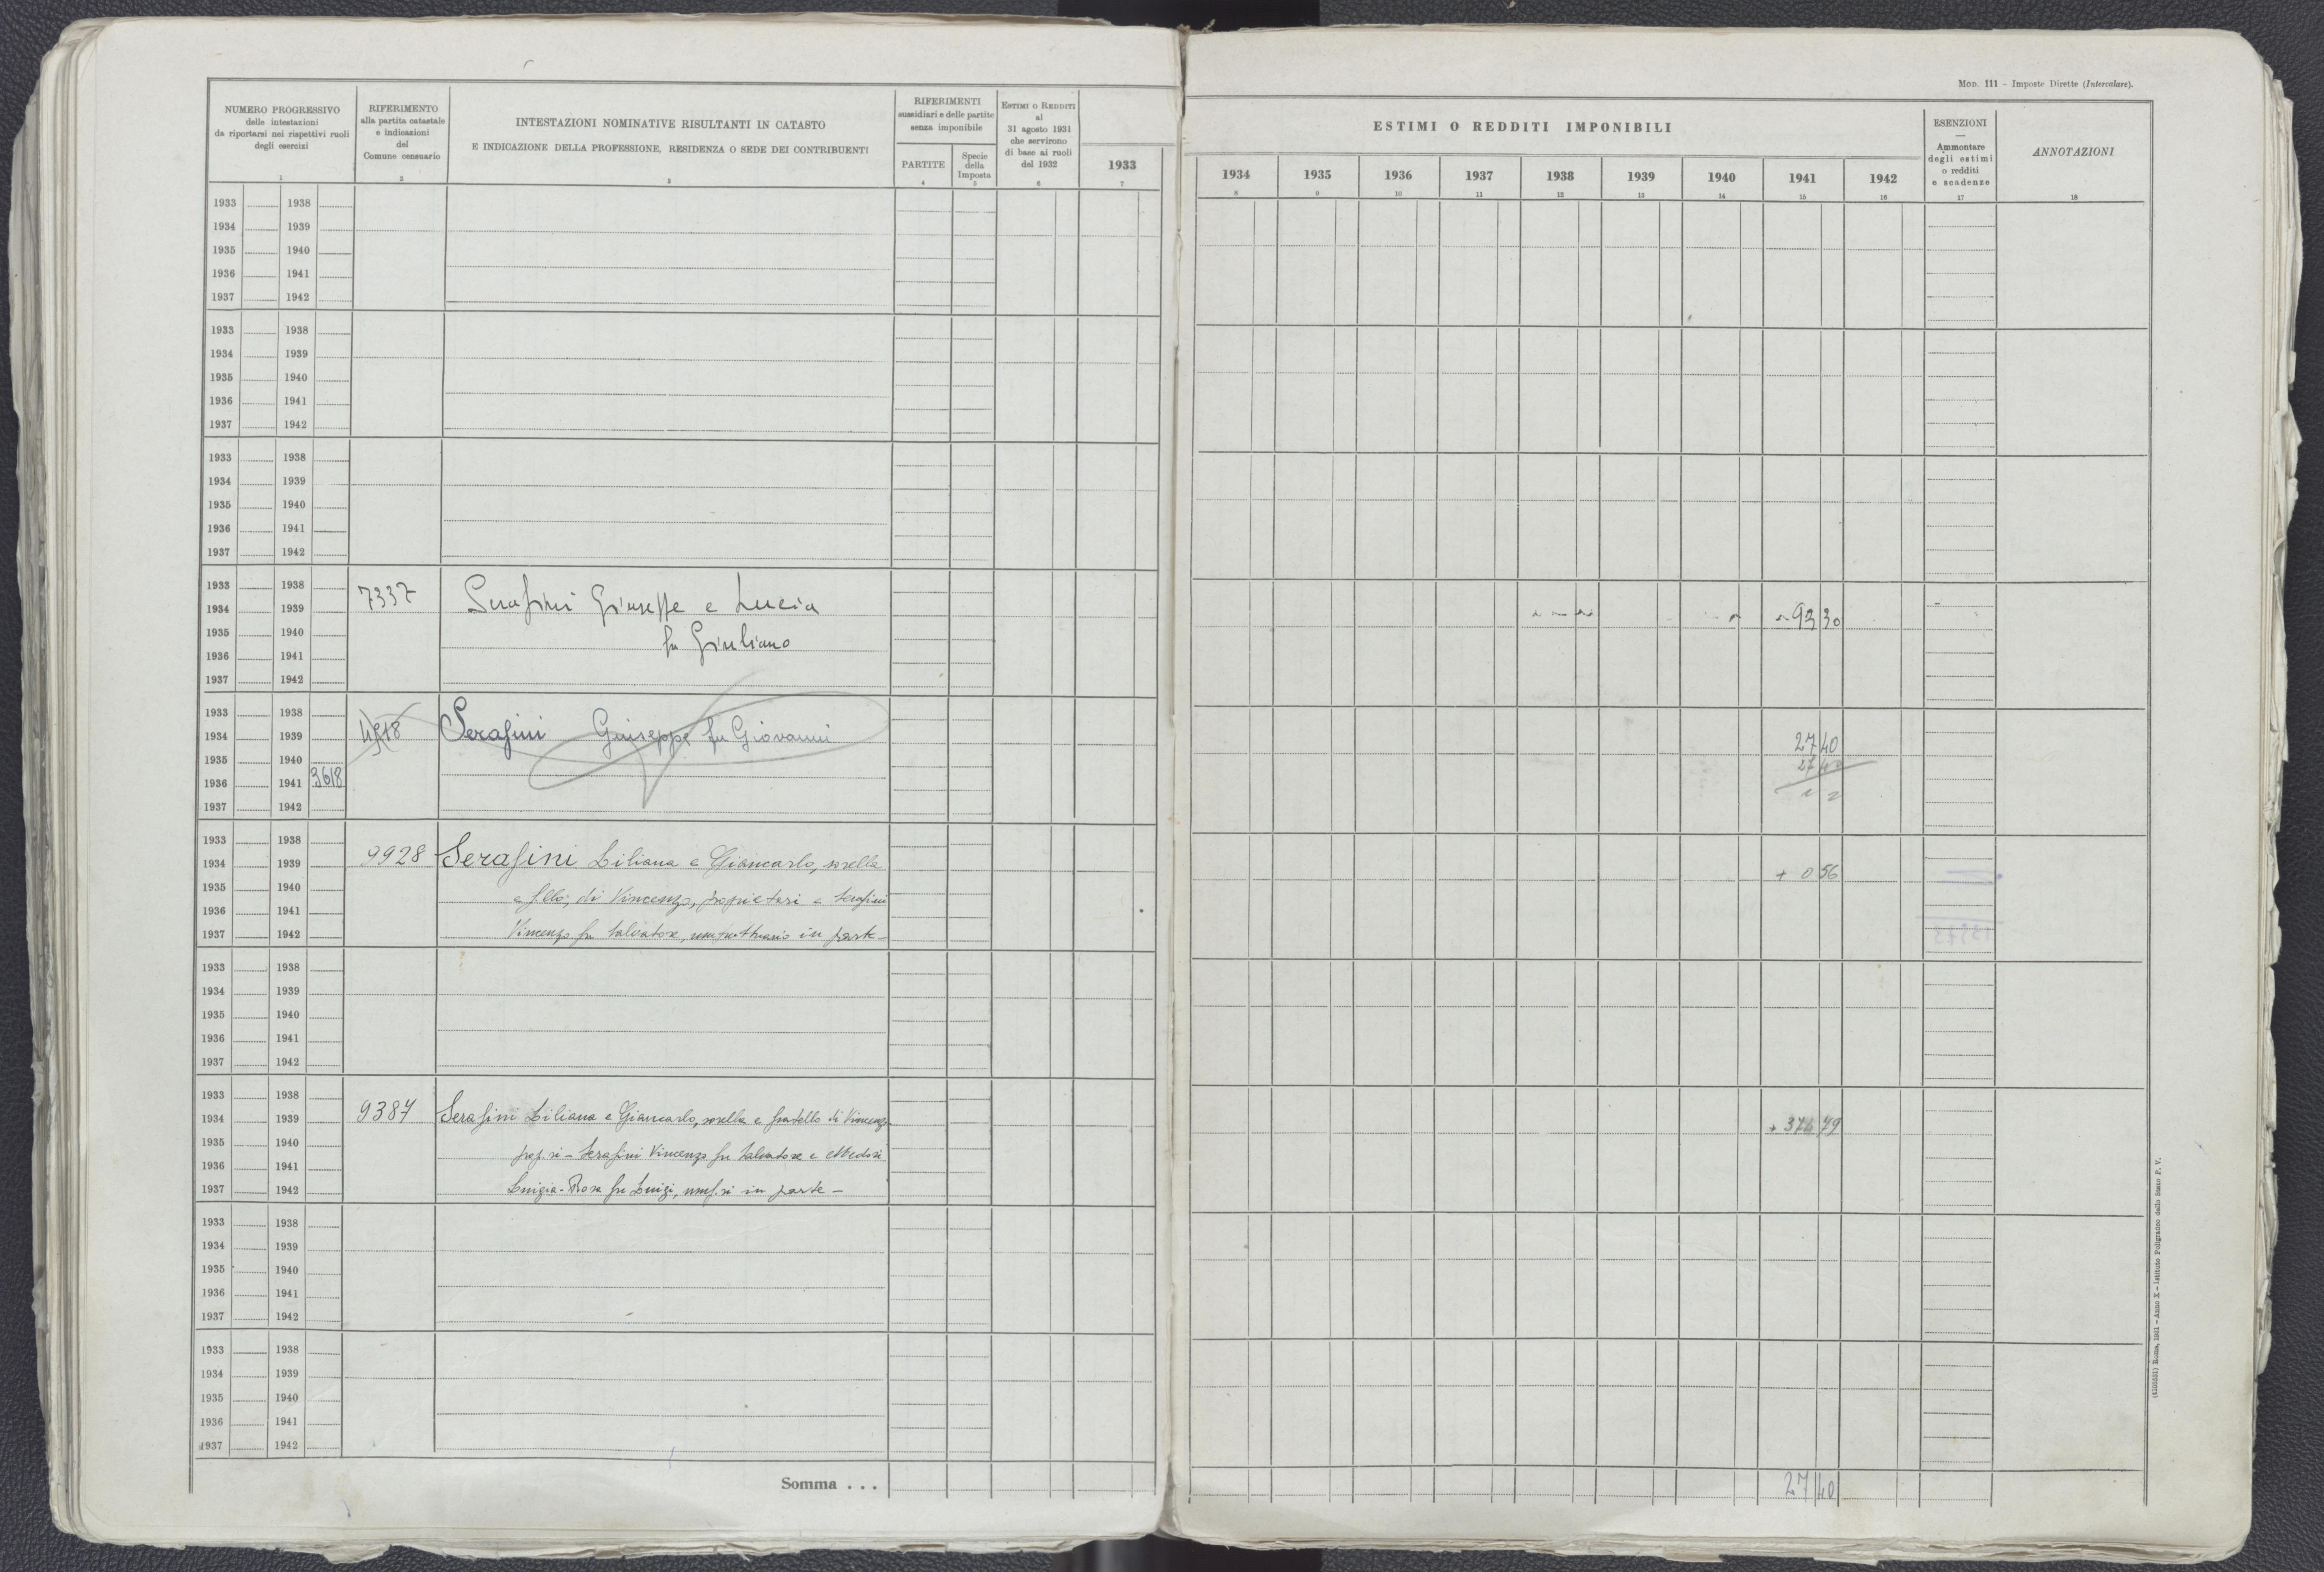 Mod. 111 - Imposte Dirette (Intercalare).
NUMERO PROGRESSIVO
delle intestazioni
da riportarsi nei rispettivi ruoli
degli esercizi
1
RIFERIMENTO
alla partita catastale
e indicazioni
del
Comune censuario
2
INTESTAZIONI NOMINATIVE RISULTANTI IN CATASTO
E INDICAZIONE DELLA PROFESSIONE, RESIDENZA O SEDE DEI CONTRIBUENTI
3
RIFERIMENTI
sussidiari e delle partite
senza imponibile
PARTITE
4
Specie
della
Imposta
5
ESTIMI O REDDITI
al
31 agosto 1931
che servirono
di base ai ruoli
del 1932
6
1933
7
ESTIMI O REDDITI IMPONIBILI
1934 1935 1936 1937 1938 1939 1940 1941 1942
8 9 10 11 12 13 14 15 16
ESENZIONI
—
Ammontare
degli estimi
o redditi
e scadenze
17
ANNOTAZIONI
18
1933 1938
1934 1939
1935 1940
1936 1941
1937 1942
1933 1938
1934 1939
1935 1940
1936 1941
1937 1942
1933 1938
1934 1939
1935 1940
1936 1941
1937 1942
1933 1938
1934 1939 7337 Serafini Giuseppe e Lucia 93 30
1935 1940 fu Giuliano
1936 1941
1937 1942
1933 1938
1934 1939 Serafini Giuseppe fu Giovanni 27 40
1935 1940 27 40
1936 1941 3618
1937 1942
1933 1938
1934 1939 9928 Serafini Liliana e Giancarlo, sorella + 0 56
1935 1940
1936 1941 e f.llo, di Vincenzo, proprietari e Serafini
1937 1942 Vincenzo fu Salvatore, usufruttuario in parte -
1933 1938
1934 1939
1935 1940
1936 1941
1937 1942
1933 1938
1934 1939 9387 Serafini Liliana e Giancarlo, sorella e fratello di Vincenzo + 376 79
1935 1940
1936 1941 prop.ri - Serafini Vincenzo fu Salvatore e
1937 1942 Luigia-Rosa fu Luigi, usuf.ri in parte -
1933 1938
1934 1939
1935 1940
1936 1941
1937 1942
1933 1938
1934 1939
1935 1940
1936 1941
1937 1942
Somma . . . 27 40
(4105551) Roma, 1931 - Anno X - Istituto Poligrafico dello Stato P. V.